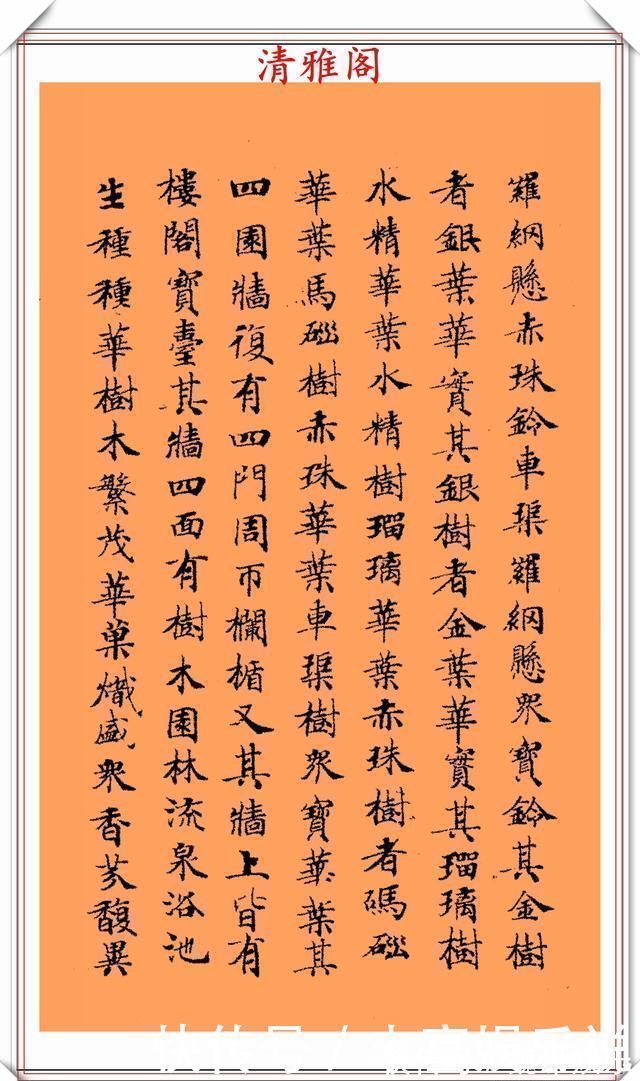 清雅阁
羅網懸赤珠鈴車渠羅網懸眾寶鈴其金樹
者銀葉華實其銀樹者金葉華實其瑠璃樹
水精華葉水精樹瑠璃華葉赤珠樹者馬碯
華葉馬碯樹赤珠華葉車渠樹眾寶華葉其
四園牆復有四門周帀欄楯又其牆上皆有
樓閣寶臺其牆四面有樹木園林流泉浴池
生種種華樹木繁茂華菓熾盛眾香芬馥異